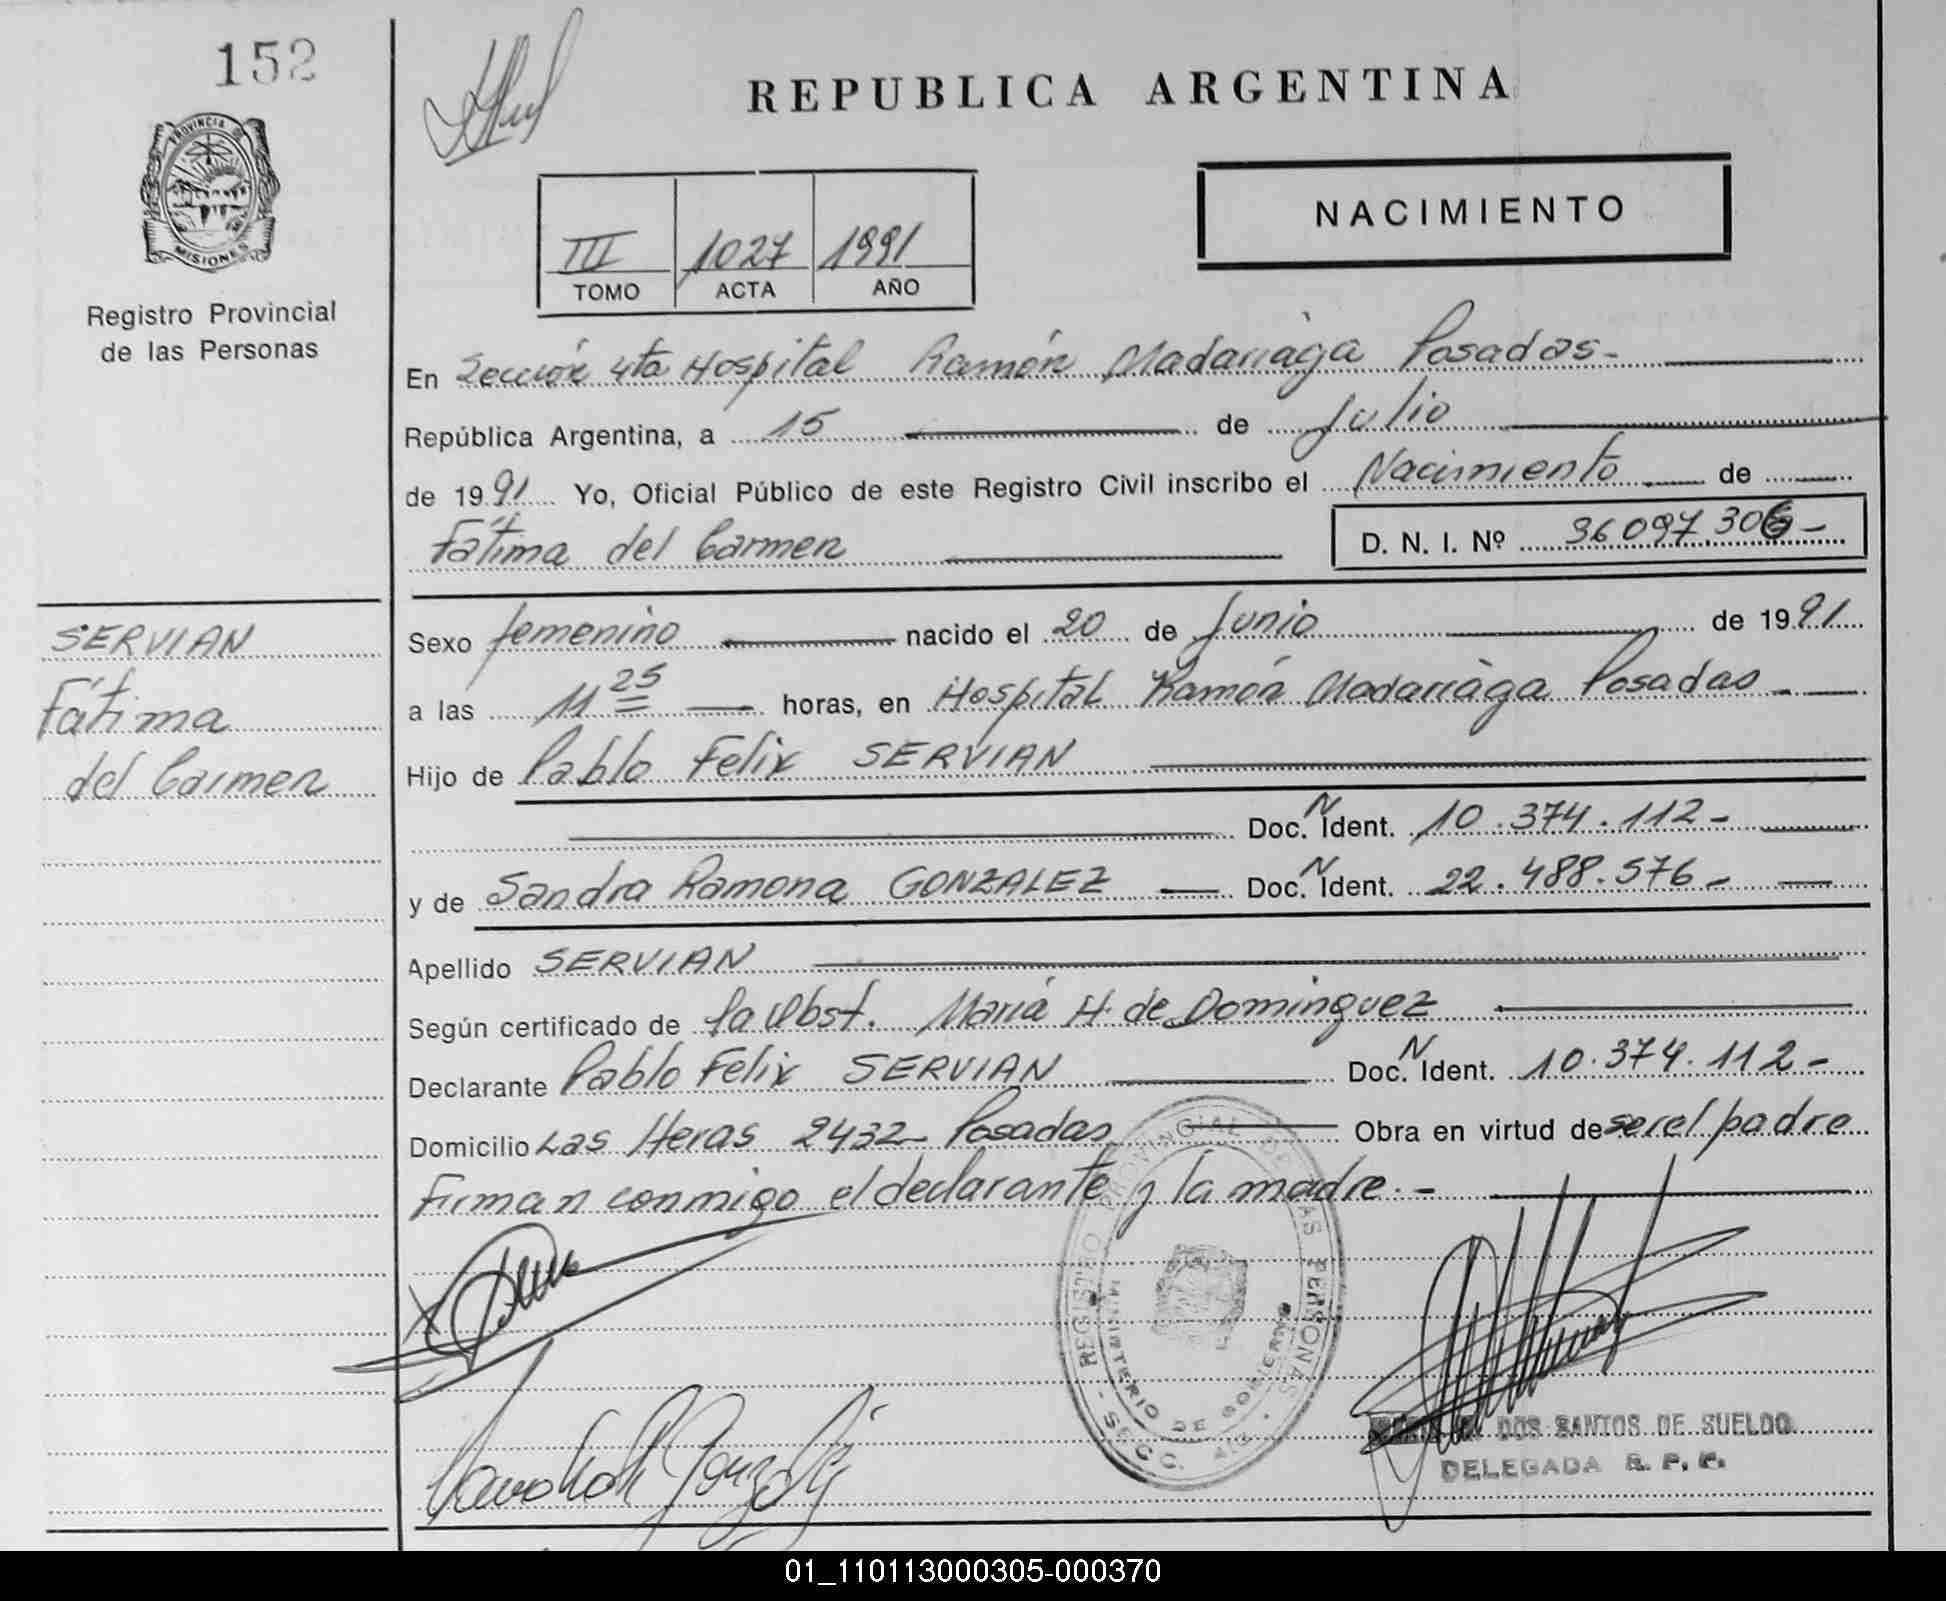 152
REPUBLICA ARGENTINA
PROVINCIA DE
MISIONES
Registro Provincial
de las Personas
III 1027 1991
TOMO ACTA AÑO
NACIMIENTO
En Sección 4ta Hospital Ramón Madariaga Posadas-
República Argentina, a 15 de Julio
de 1991 Yo, Oficial Público de este Registro Civil inscribo el Nacimiento de
Fátima del Carmen D. N. I. Nº 36097306-
SERVIAN
Fátima
del Carmen
Sexo femenino nacido el 20 de Junio de 1991
a las 11 25 horas, en Hospital Ramón Madariaga Posadas-
Hijo de Pablo Felix SERVIAN
Doc. N Ident. 10.374.112-
y de Sandra Ramona GONZALEZ Doc. N Ident. 22.488.576-
Apellido SERVIAN
Según certificado de la Obst. María H. de Dominguez
Declarante Pablo Felix SERVIAN Doc. N Ident. 10.374.112-
Domicilio Las Heras 2432- Posadas Obra en virtud de ser el padre
Firman conmigo el declarante y la madre.-
REGISTRO PROVINCIAL DE LAS PERSONAS
MINISTERIO DE GOBIERNO
SECC. 4ta.
DOS SANTOS DE SUELDO
DELEGADA R. P. P.
01_110113000305-000370